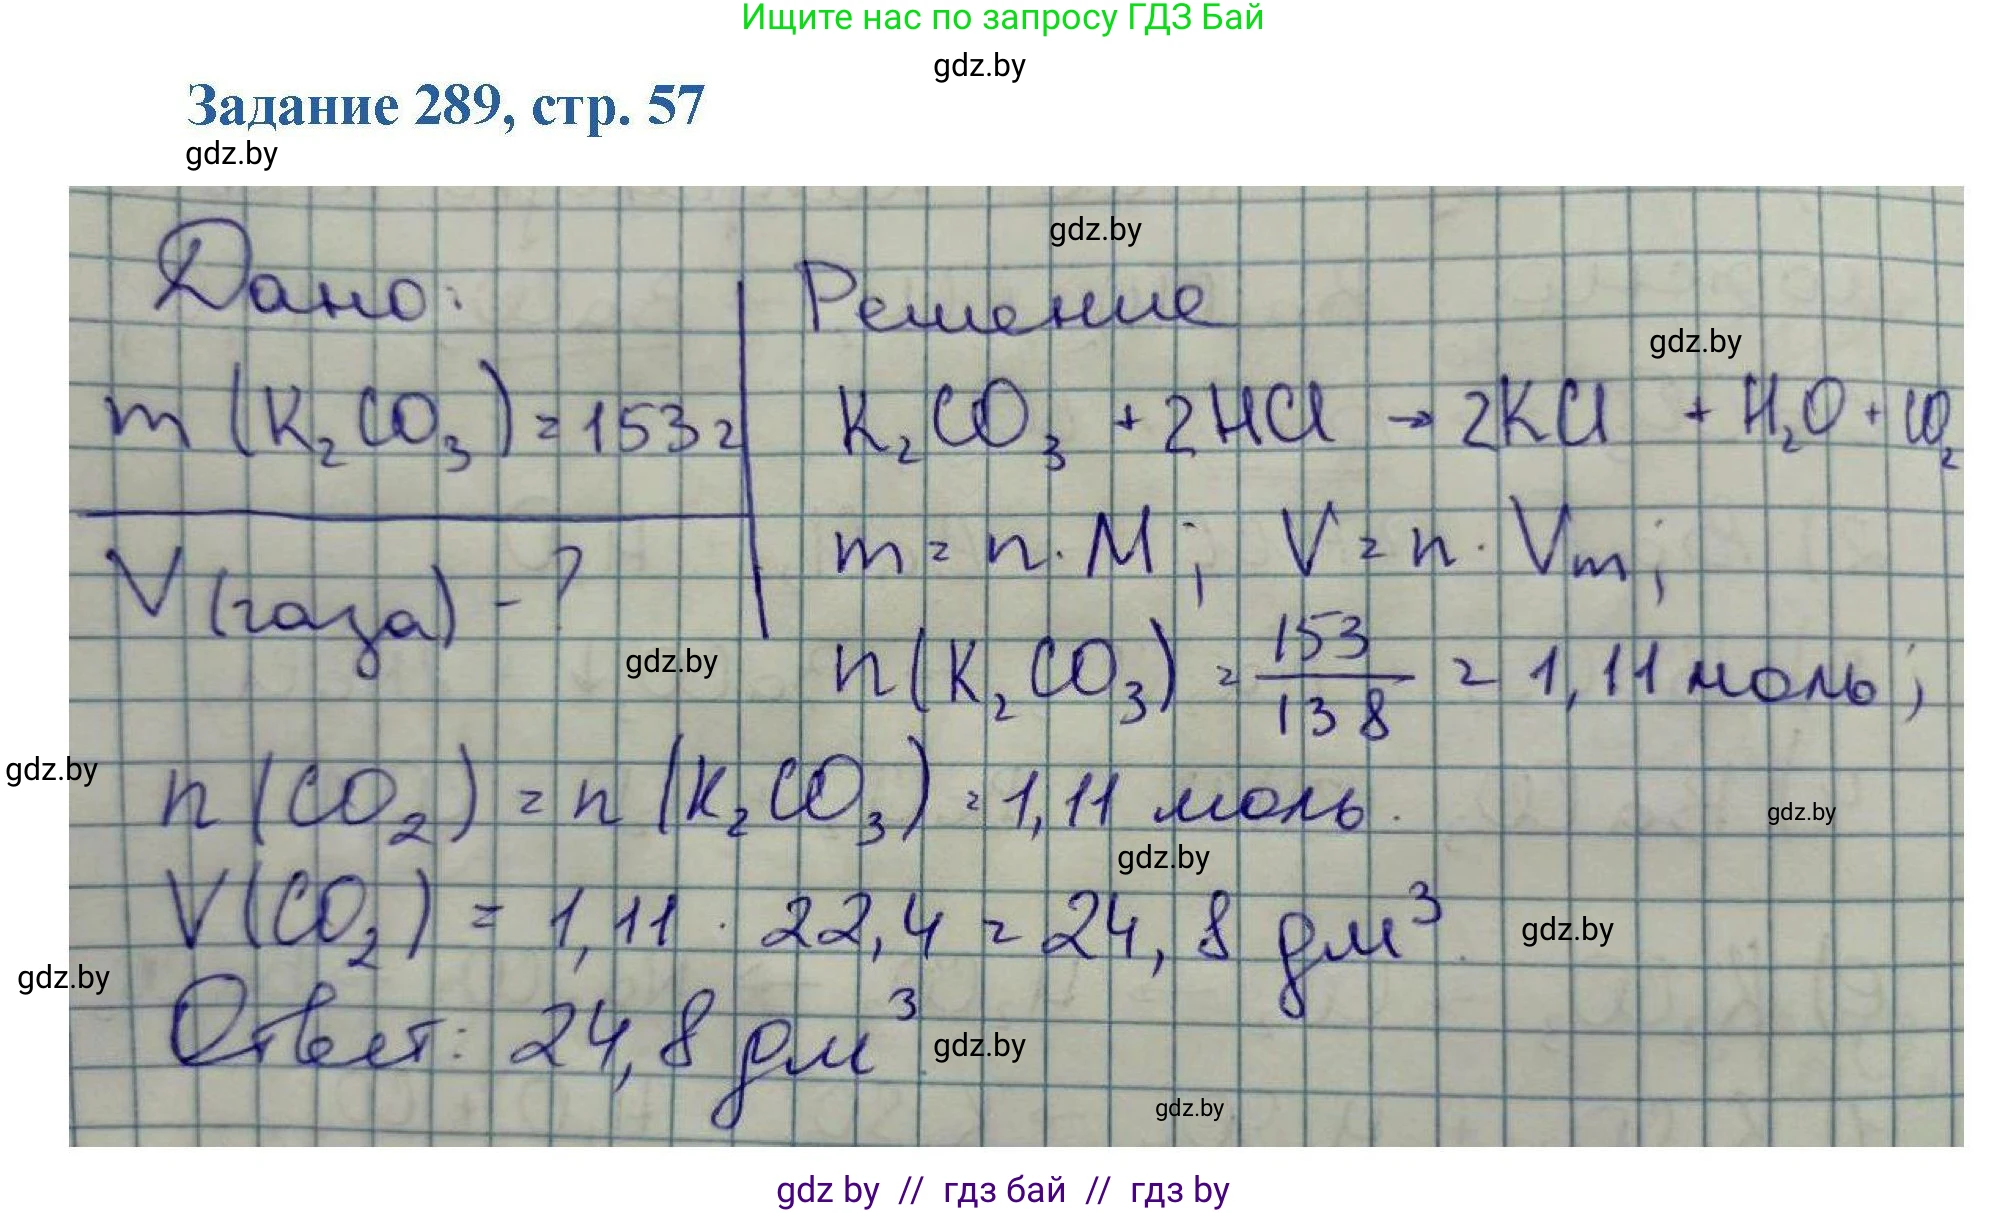 Ищите нас по запросу ГДЗ Бай
gdz.by
Задание 289, стр. 57
gdz.by
gdz.by
Дано:
Решение
gdz.by
m (K₂CO₃) = 153 г
K₂CO₃ + 2HCl → 2KCl + H₂O + CO₂
m = n · M; V = n · Vm;
V (газа) - ?
n (K₂CO₃) = 153/138 = 1,11 моль;
gdz.by
gdz.by
n (CO₂) = n (K₂CO₃) = 1,11 моль.
gdz.by
gdz.by
V (CO₂) = 1,11 · 22,4 = 24,8 дм³.
gdz.by
gdz.by
Ответ: 24,8 дм³.
gdz.by
gdz.by
gdz by // гдз бай // гдз by